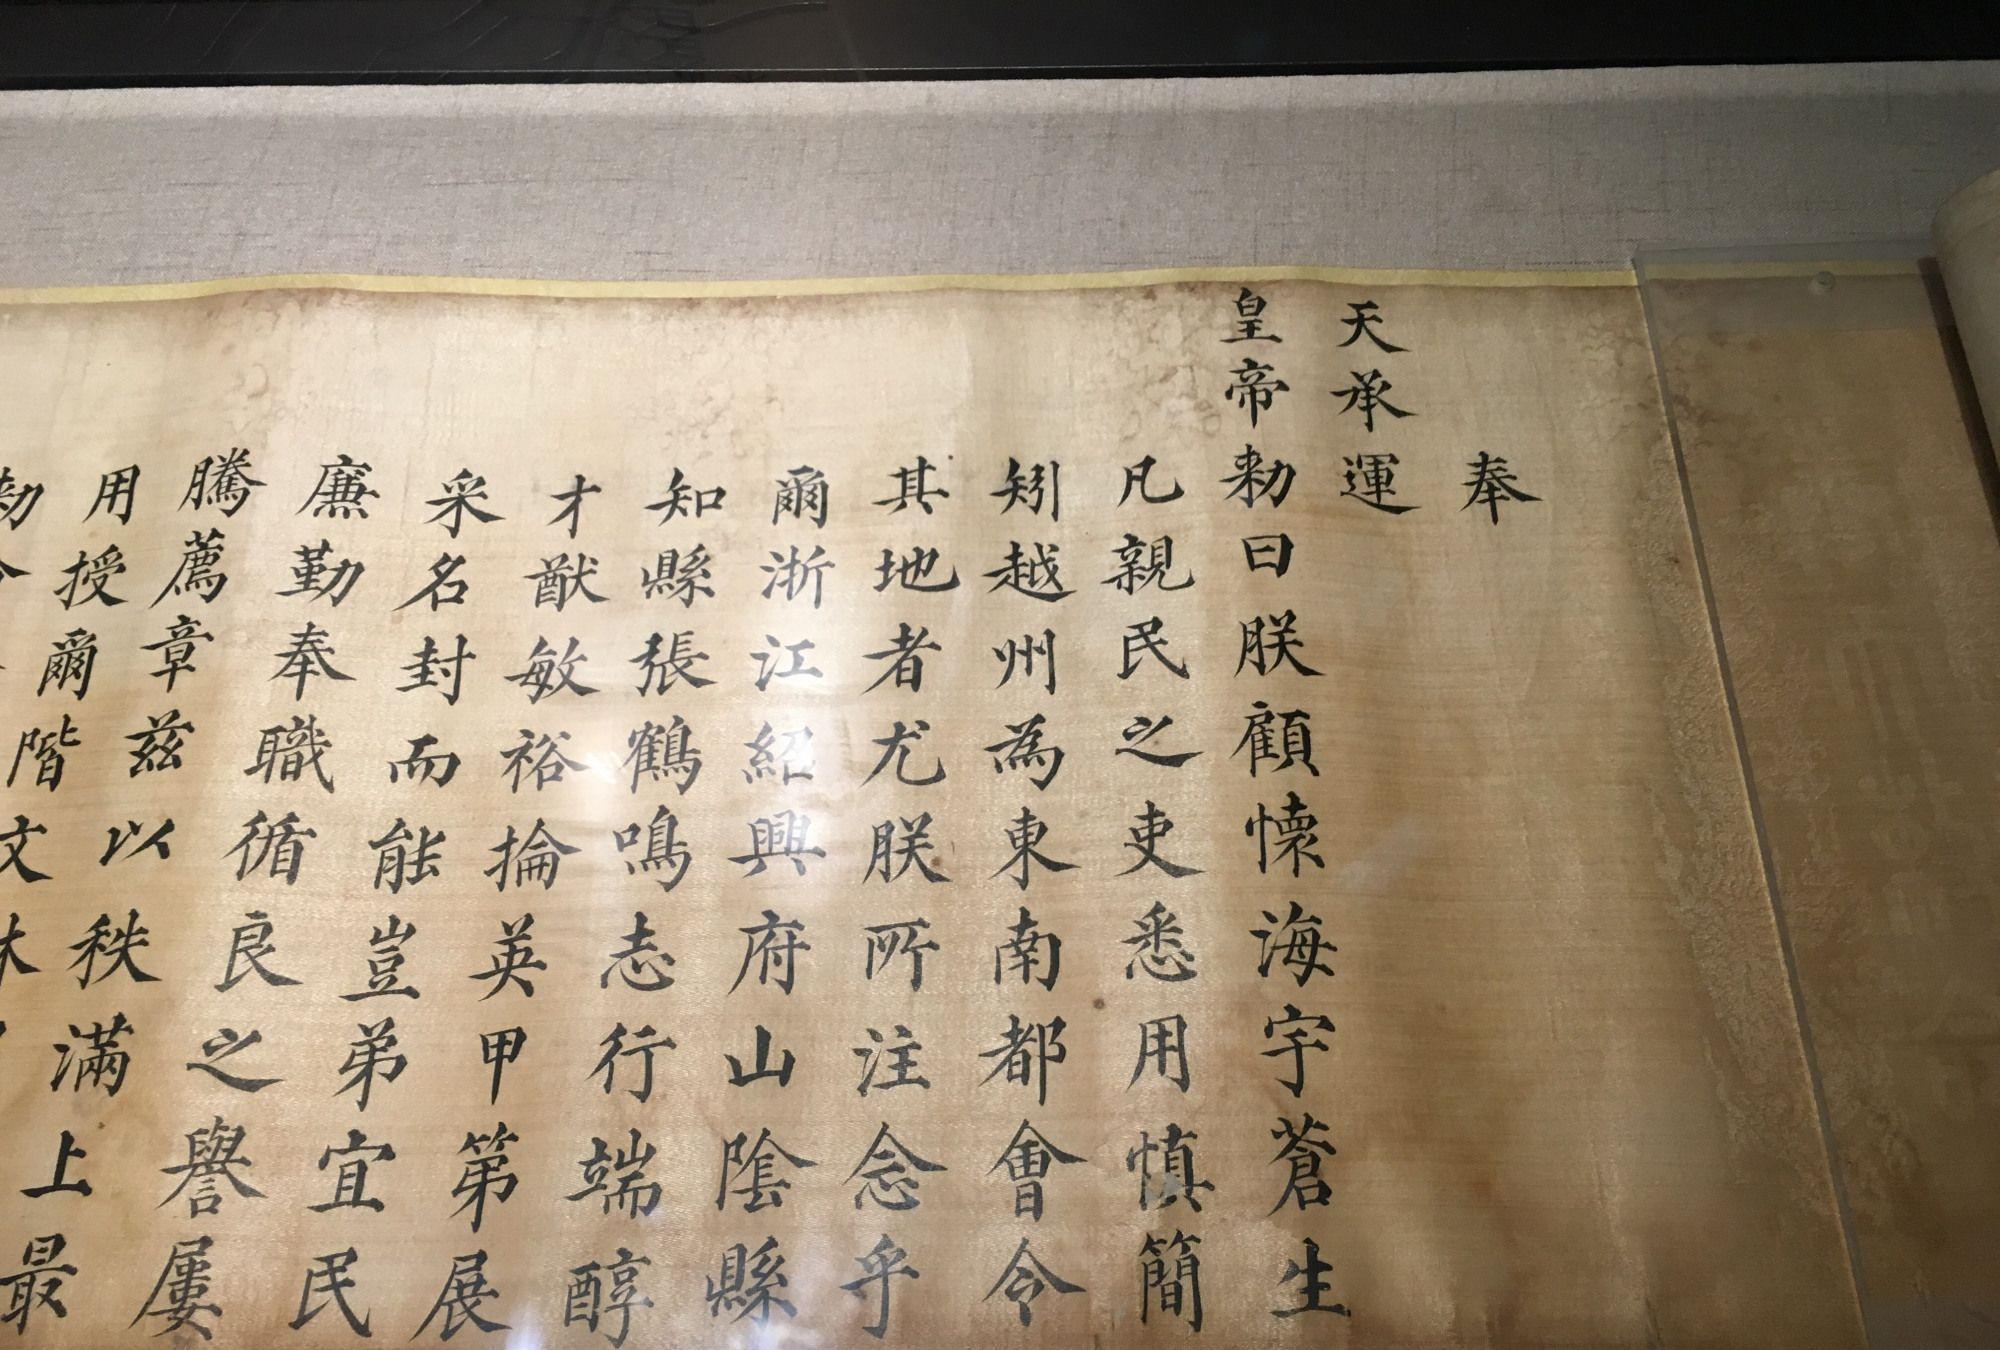 奉
天承運
皇帝勅曰朕顧懷海宇蒼生
凡親民之吏悉用慎簡
矧越州為東南都會令
其地者尤朕所注念乎
爾浙江紹興府山陰縣
知縣張鶴鳴志行端醇
才猷敏裕掄英甲第展
采名封而能豈弟宜民
廉勤奉職循良之譽屢
騰薦章茲以秩滿上最
用授爾階文林
勅